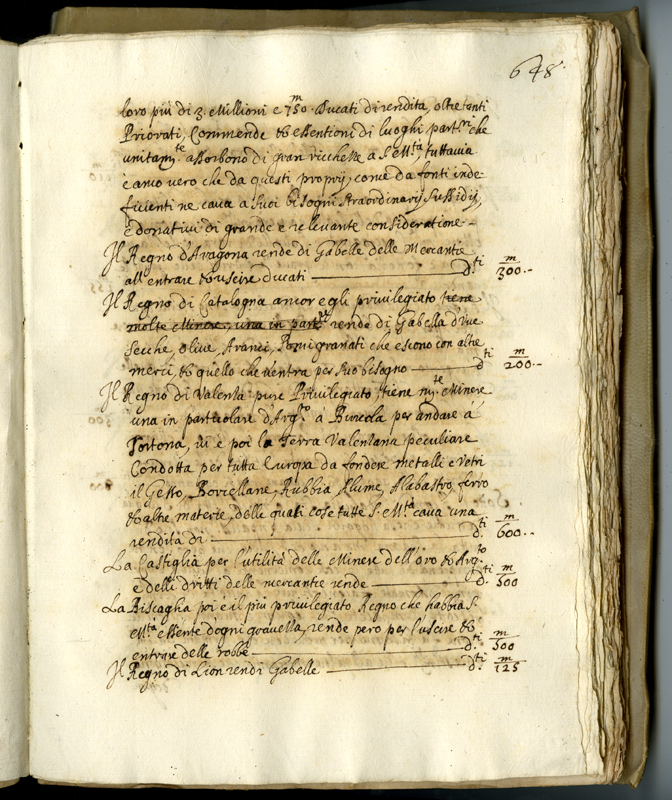 648
loro piu di 3. Millioni e 750.m Ducati di rendita, oltre tanti
Priorati, Commende et essentioni di luoghi part.ri che
unitam.te assorbono di gran ricchesse a S. M.ta, tuttavia
è anco vero che da questi proprij, come da fonti inde
ficienti ne cava a suoi bisogni straordinarij sussidij,
e donativi di grande e relevante consideratione -
Il Regno d'Aragona rende di Gabelle delle Mercantie
all'entrare et uscire ducati d.ti 300.m
Il Regno di Catalogna ancor egli privilegiato tiene
molte Minere, una in part.re rende di Gabella d'uve
secche, olive, Aranci, Pomi granati che escono con altre
merci, et quello che ventra per suo bisogno d.ti 200.m
Il Regno di Valenta pure Privilegiato tiene m.te Minere
una in particolare d'Arg.to à per andare à
Tortona, ivi e poi la Terra Valentana peculiare
Condotta per tutta Europa da fondere metalli e vetri
il Gesso, Rubbia, Alume, Alabastro, ferro
et altre materie, delle quali cose tutte S. M.ta cava una
rendita di d.ti 600.m
La Castiglia per l'utilità delle Minere dell'oro et Arg.to
e delli dritti delle mercantie rende d.ti 500.m
La Biscaglia poi è il piu privilegiato Regno che habbia S.
M.ta essente d'ogni gravessa, rende pero per l'uscire et
entrare delle robbe d.ti 500.m
Il Regno di Lion rendi Gabelle d.ti 125.m